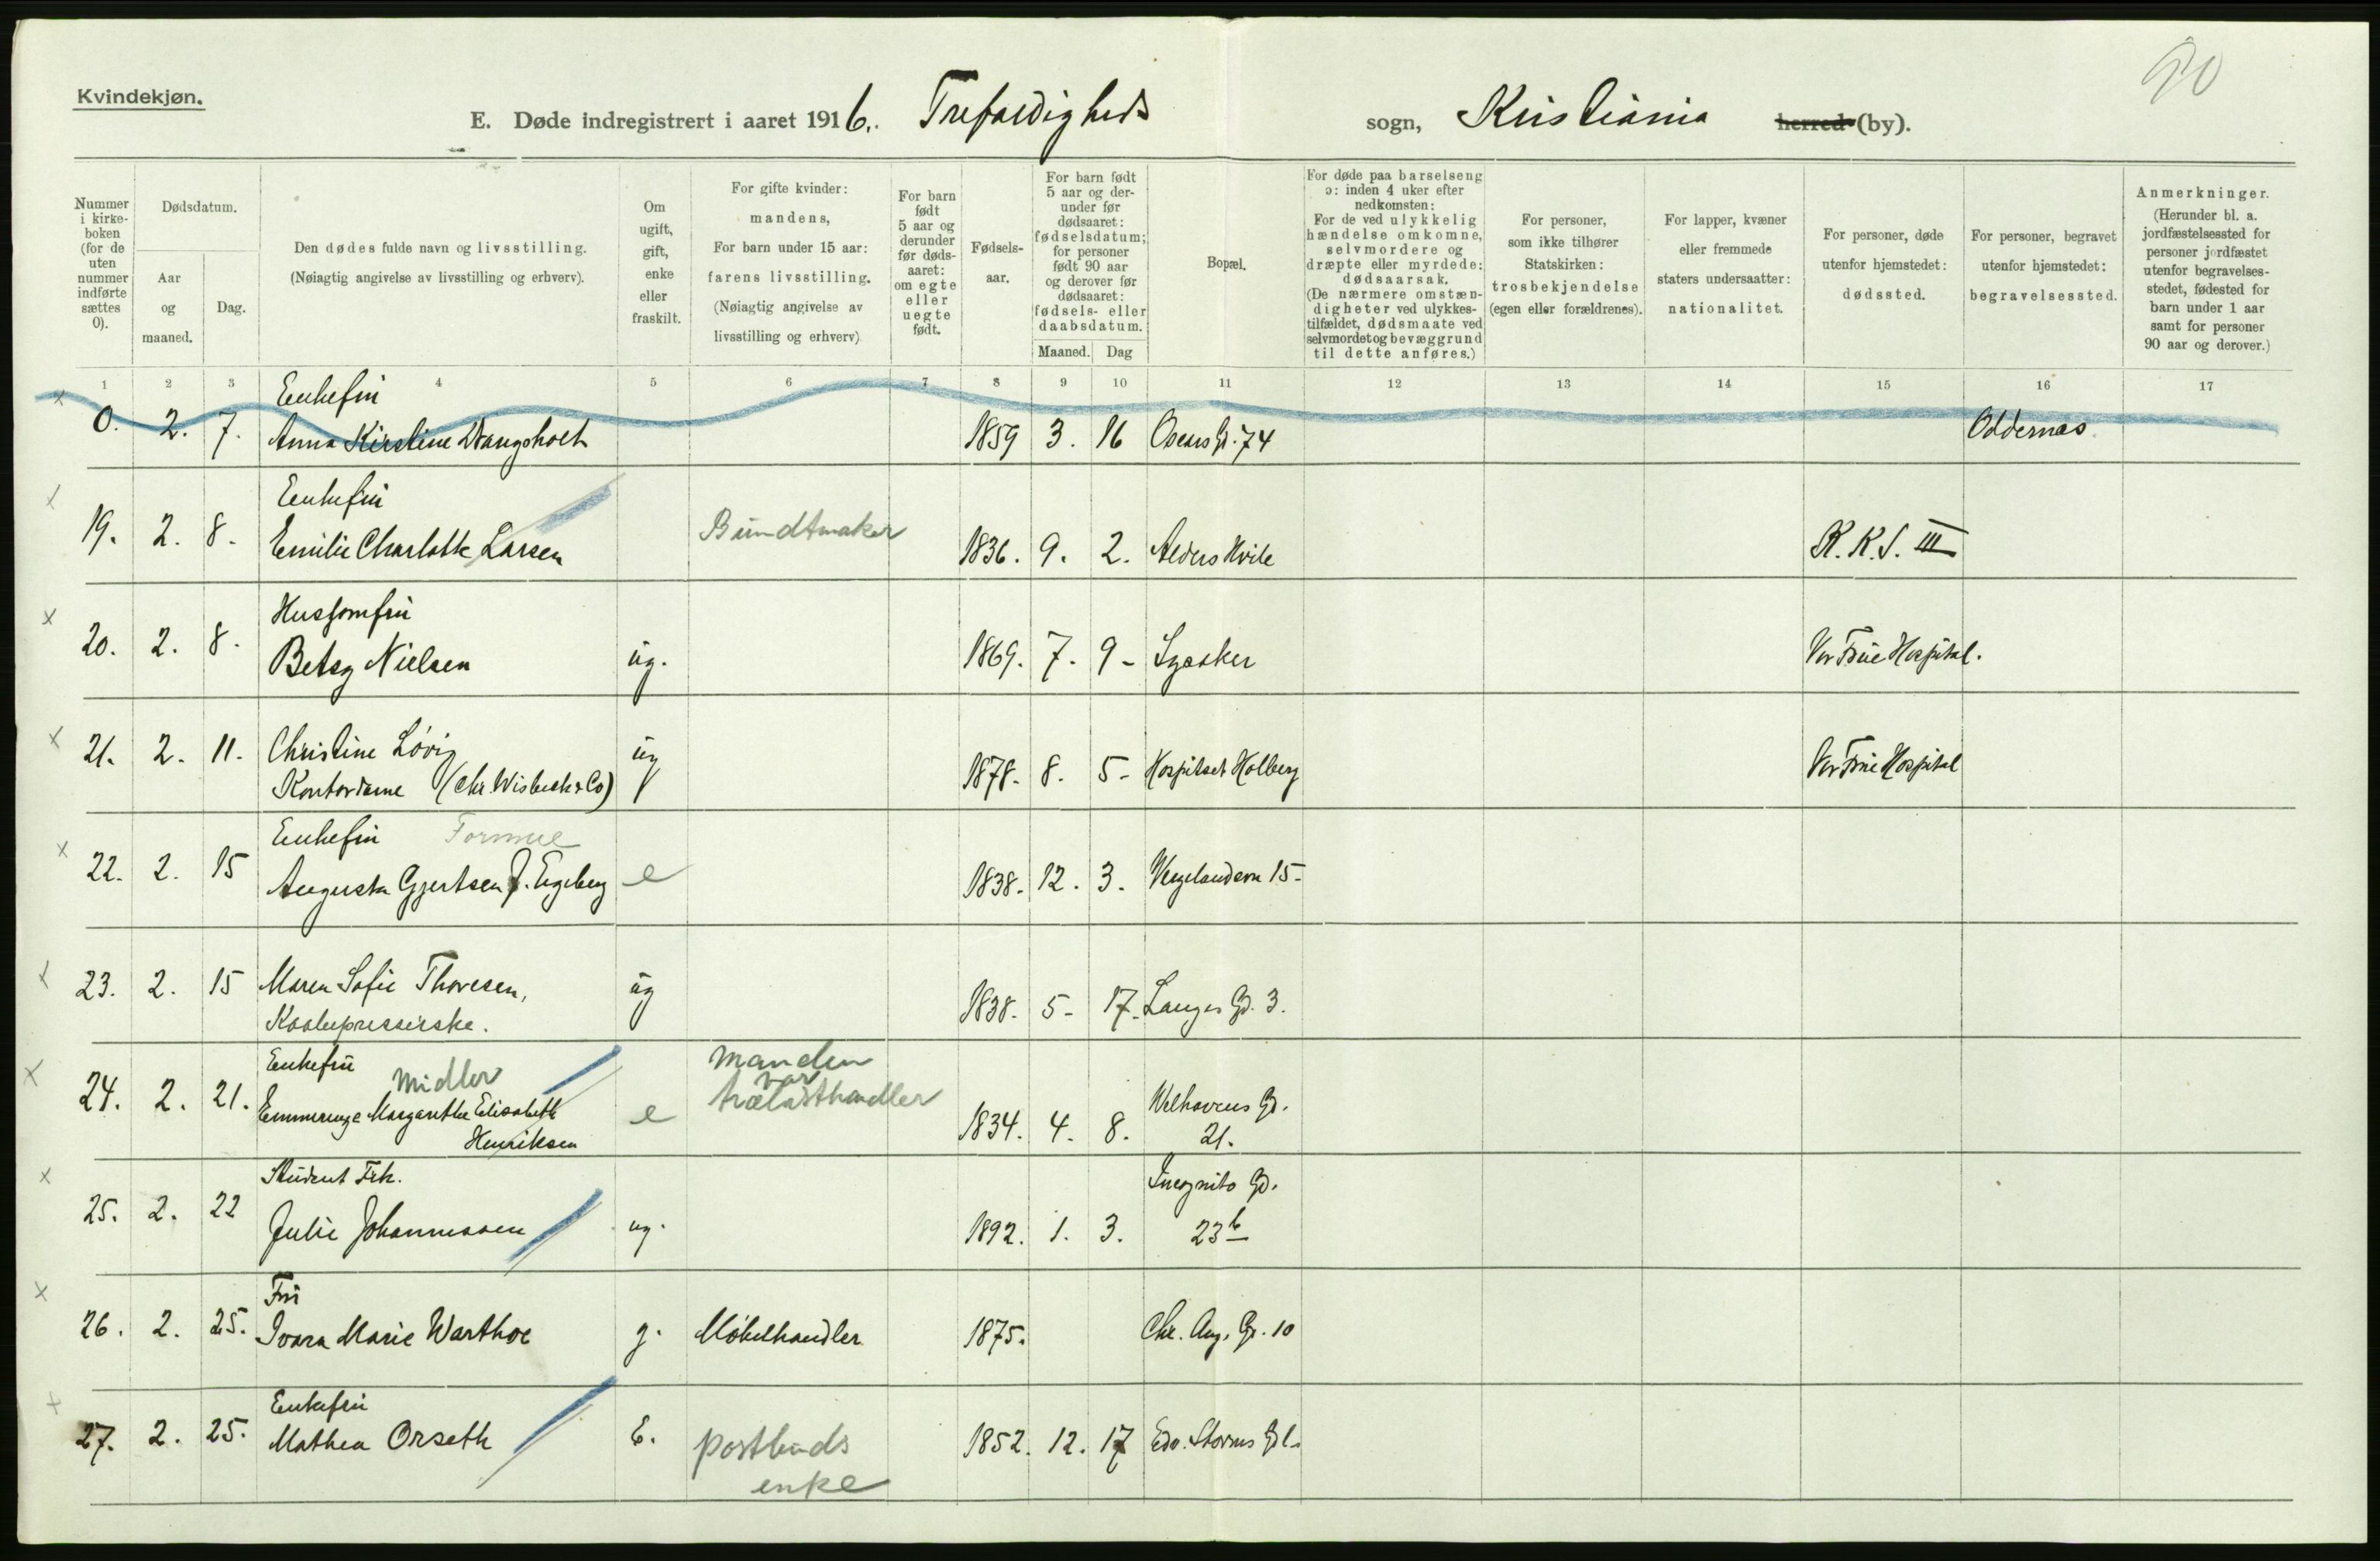 90
Kvindekjøn.
E. Døde indregistrert i aaret 1916. Trefoldigheds sogn, Kristiania herred (by).
Nummer
i kirke-
boken
(for de
uten
nummer
indførte
sættes
0).
Dødsdatum.
Aar
og
maaned.
Dag.
Den dødes fulde navn og livsstilling.
(Nøiagtig angivelse av livsstilling og erhverv).
Om
ugift,
gift,
enke
eller
fraskilt.
For gifte kvinder:
mandens,
For barn under 15 aar:
farens livsstilling.
(Nøiagtig angivelse av
livsstilling og erhverv)
For barn
født
5 aar og
derunder
før døds-
aaret:
om egte
eller
uegte
født.
Fødsels-
aar.
For barn født
5 aar og der-
under før
dødsaaret:
fødselsdatum;
for personer
født 90 aar
og derover før
dødsaaret:
fødsels- eller
daabsdatum.
Maaned. Dag
Bopæl.
For døde paa barselseng
ɔ: inden 4 uker efter
nedkomsten:
For de ved ulykkelig
hændelse omkomne,
selvmordere og
dræpte eller myrdede:
dødsaarsak.
(De nærmere omstæn-
digheter ved ulykkes-
tilfældet, dødsmaate ved
selvmordet og bevæggrund
til dette anføres.)
For personer,
som ikke tilhører
Statskirken:
trosbekjendelse
(egen eller forældrenes).
For lapper, kvæner
eller fremmede
staters undersaatter:
nationalitet.
For personer, døde
utenfor hjemstedet:
dødssted.
For personer, begravet
utenfor hjemstedet:
begravelsessted.
Anmerkninger.
(Herunder bl. a.
jordfæstelsessted for
personer jordfæstet
utenfor begravelses-
stedet, fødested for
barn under 1 aar
samt for personer
90 aar og derover.)
1 2 3 4 5 6 7 8 9 10 11 12 13 14 15 16 17
Enkefru
0. 2. 7. Anna Kirstine Wangsholt 1859 3. 16 Oscars Gd. 74 Oddernæs
Enkefru
19. 2. 8. Emilie Charlotte Larsen Bundtmaker 1836. 9. 2. Alders Hvile K. K. S. III
Husjomfru
20. 2. 8. Betsy Nielsen ug. 1869. 7. 9- Lysaker Vor Frue Hospital.
21. 2. 11. Christine Løvig ug 1878. 8. 5- Hospitset Holberg Vor Frue Hospital
Kontordame (Chr. Wisbech & Co)
Enkefru Formue
22. 2. 15 Augusta Gjertsen f. Egeberg e 1838. 12. 3. Wergelandsvn 15-
23. 2. 15 Maren Sofie Thoresen, ug 1838. 5- 17. Langes Gd. 3.
Kaabepresserske.
Enkefru Midler
24. 2. 21. Emmerenze Margarethe Elisabeth e Manden
var
trælasthandler 1834. 4. 8. Welhavens Gd.
Henriksen 21.
Student Frk. Incognito Gd.
25. 2. 22 Julie Johannessen ug. 1892. 1. 3. 23 b
Fru
26. 2. 25. Ivara Marie Warthoe g. Møbelhandler 1875. Chr. Aug. Gd. 10
Enkefru
27. 2. 25. Mathea Orseth E. postbuds 1852. 12. 17 Edv. Storms Gd 1.
enke